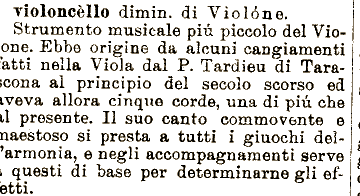 violoncèllo dimin. di Violóne.
Strumento musicale piú piccolo del Vio-
one. Ebbe origine da alcuni cangiamenti
fatti nella Viola dal P. Tardieu di Tara-
scona al principio del secolo scorso ed
aveva allora cinque corde, una di piú che
al presente. Il suo canto commovente e
maestoso si presta a tutti i giuochi del-
l'armonia, e negli accompagnamenti serve
a questi di base per determinarne gli ef-
fetti.